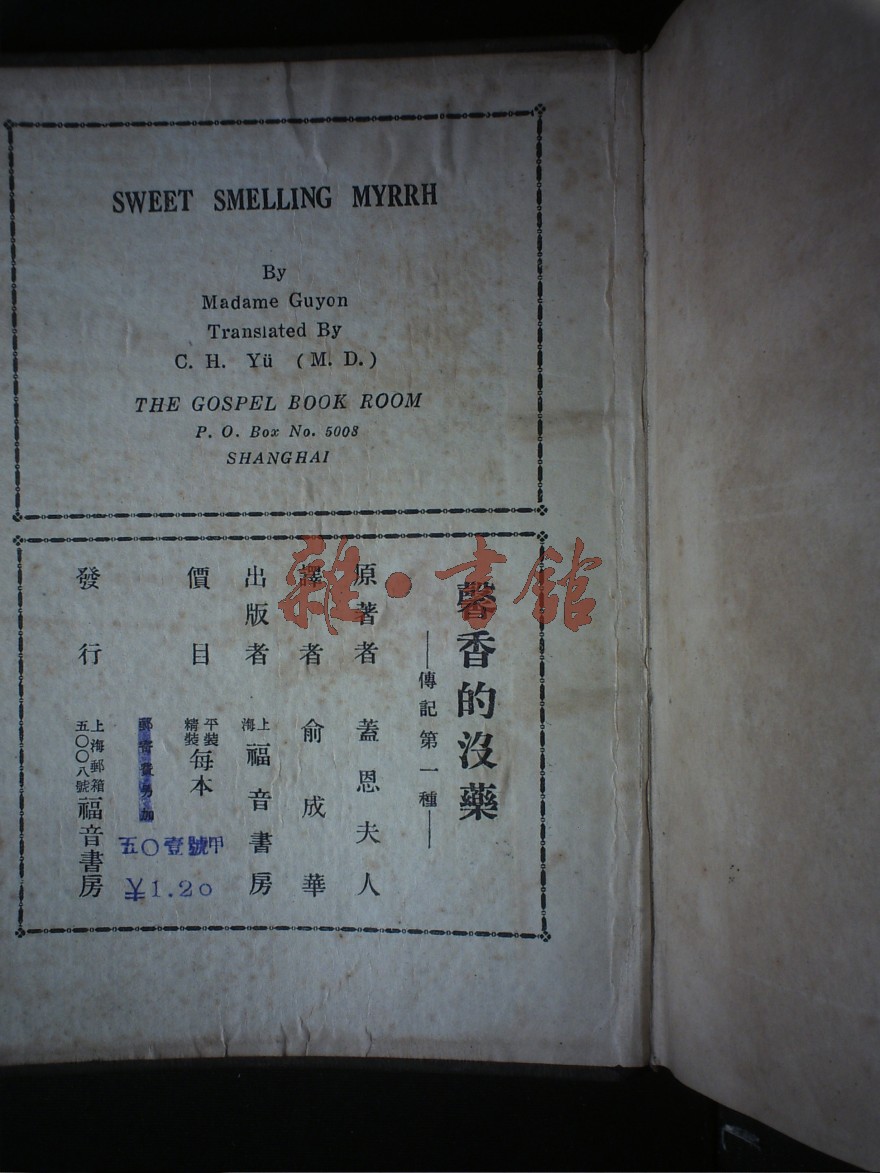 SWEET SMELLING MYRRH
By
Madame Guyon
Translated By
C. H. Yü (M. D.)
THE GOSPEL BOOK ROOM
P. O. Box No. 5008
SHANGHAI
雜·書館
馨香的沒藥
——傳記第一種——
原著者 蓋恩夫人
譯者 俞成華
出版者 上海福音書房
價目 平裝精裝每本
郵寄費另加
甲號壹〇五
¥1.20
發行 上海郵箱五〇〇八號福音書房